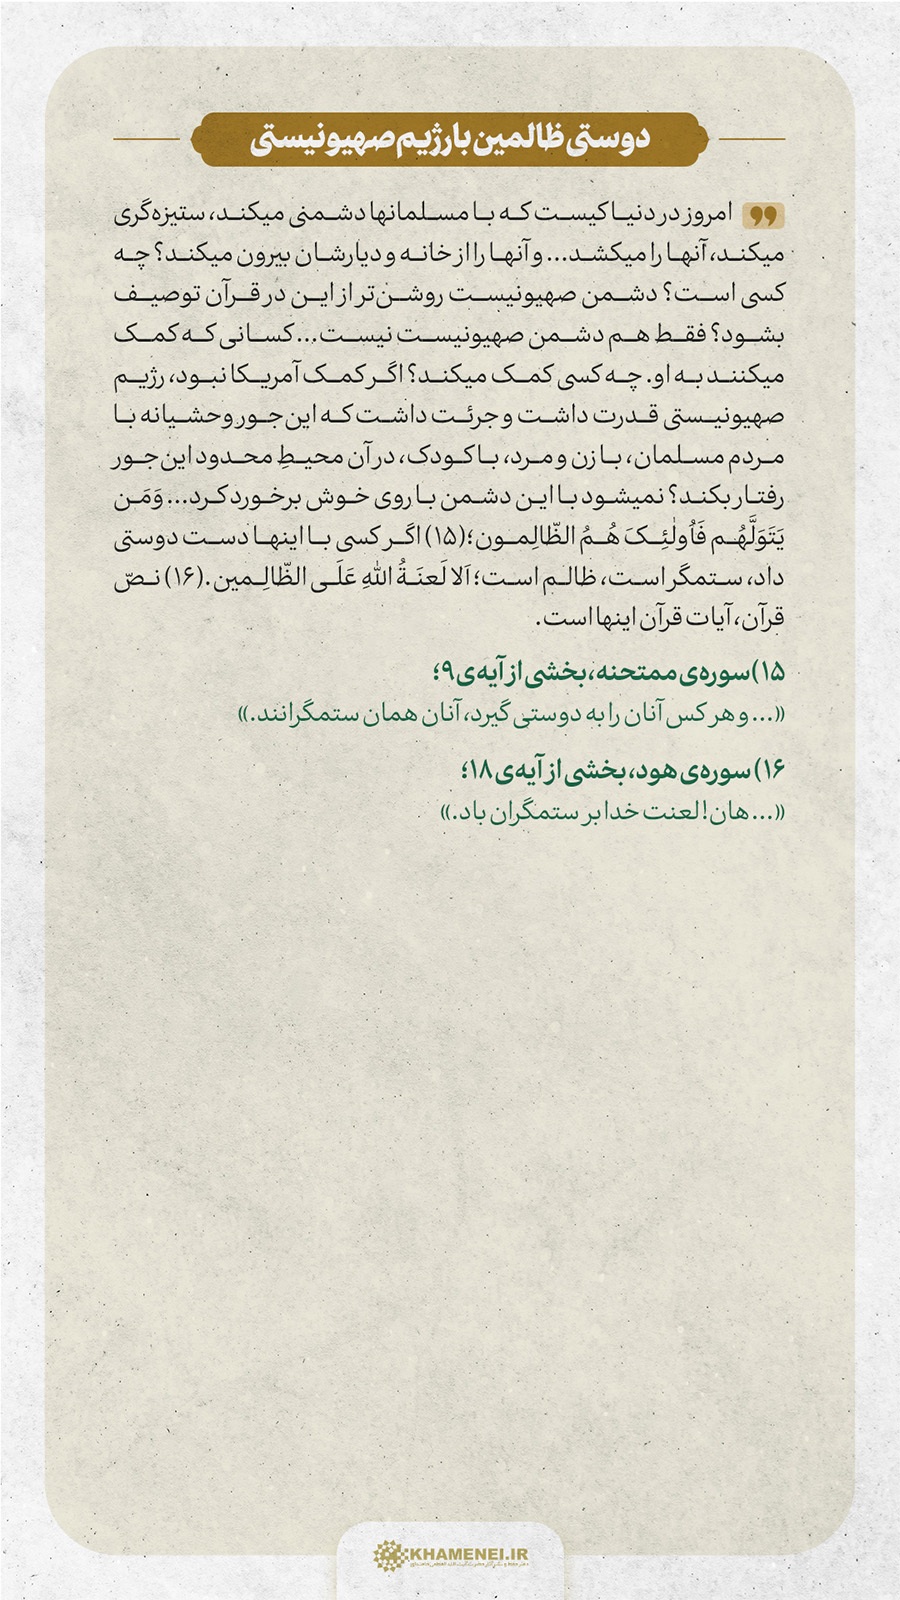 دوستی ظالمین با رژیم صهیونیستی
امروز در دنیا کیست که با مسلمانها دشمنی میکند، ستیزه‌گری
میکند، آنها را میکشد... و آنها را از خانه و دیارشان بیرون میکند؟ چه
کسی است؟ دشمن صهیونیست روشن‌تر از این در قرآن توصیف
بشود؟ فقط هم دشمن صهیونیست نیست... کسانی که کمک
میکنند به او. چه کسی کمک میکند؟ اگر کمک آمریکا نبود، رژیم
صهیونیستی قدرت داشت و جرئت داشت که این جور وحشیانه با
مردم مسلمان، با زن و مرد، با کودک، در آن محیطِ محدود این جور
رفتار بکند؟ نمیشود با این دشمن با روی خوش برخورد کرد... وَمَن
یَتَوَلَّهُم فَاُولٰئِکَ هُمُ الظّالِمون؛(۱۵) اگر کسی با اینها دست دوستی
داد، ستمگر است، ظالم است؛ اَلا لَعنَةُ اللهِ عَلَی الظّالِمین.(۱۶) نصّ
قرآن، آیات قرآن اینها است.
۱۵) سوره‌ی ممتحنه، بخشی از آیه‌ی ۹؛
«... و هر کس آنان را به دوستی گیرد، آنان همان ستمگرانند.»
۱۶) سوره‌ی هود، بخشی از آیه‌ی ۱۸؛
«... هان! لعنت خدا بر ستمگران باد.»
KHAMENEI.IR